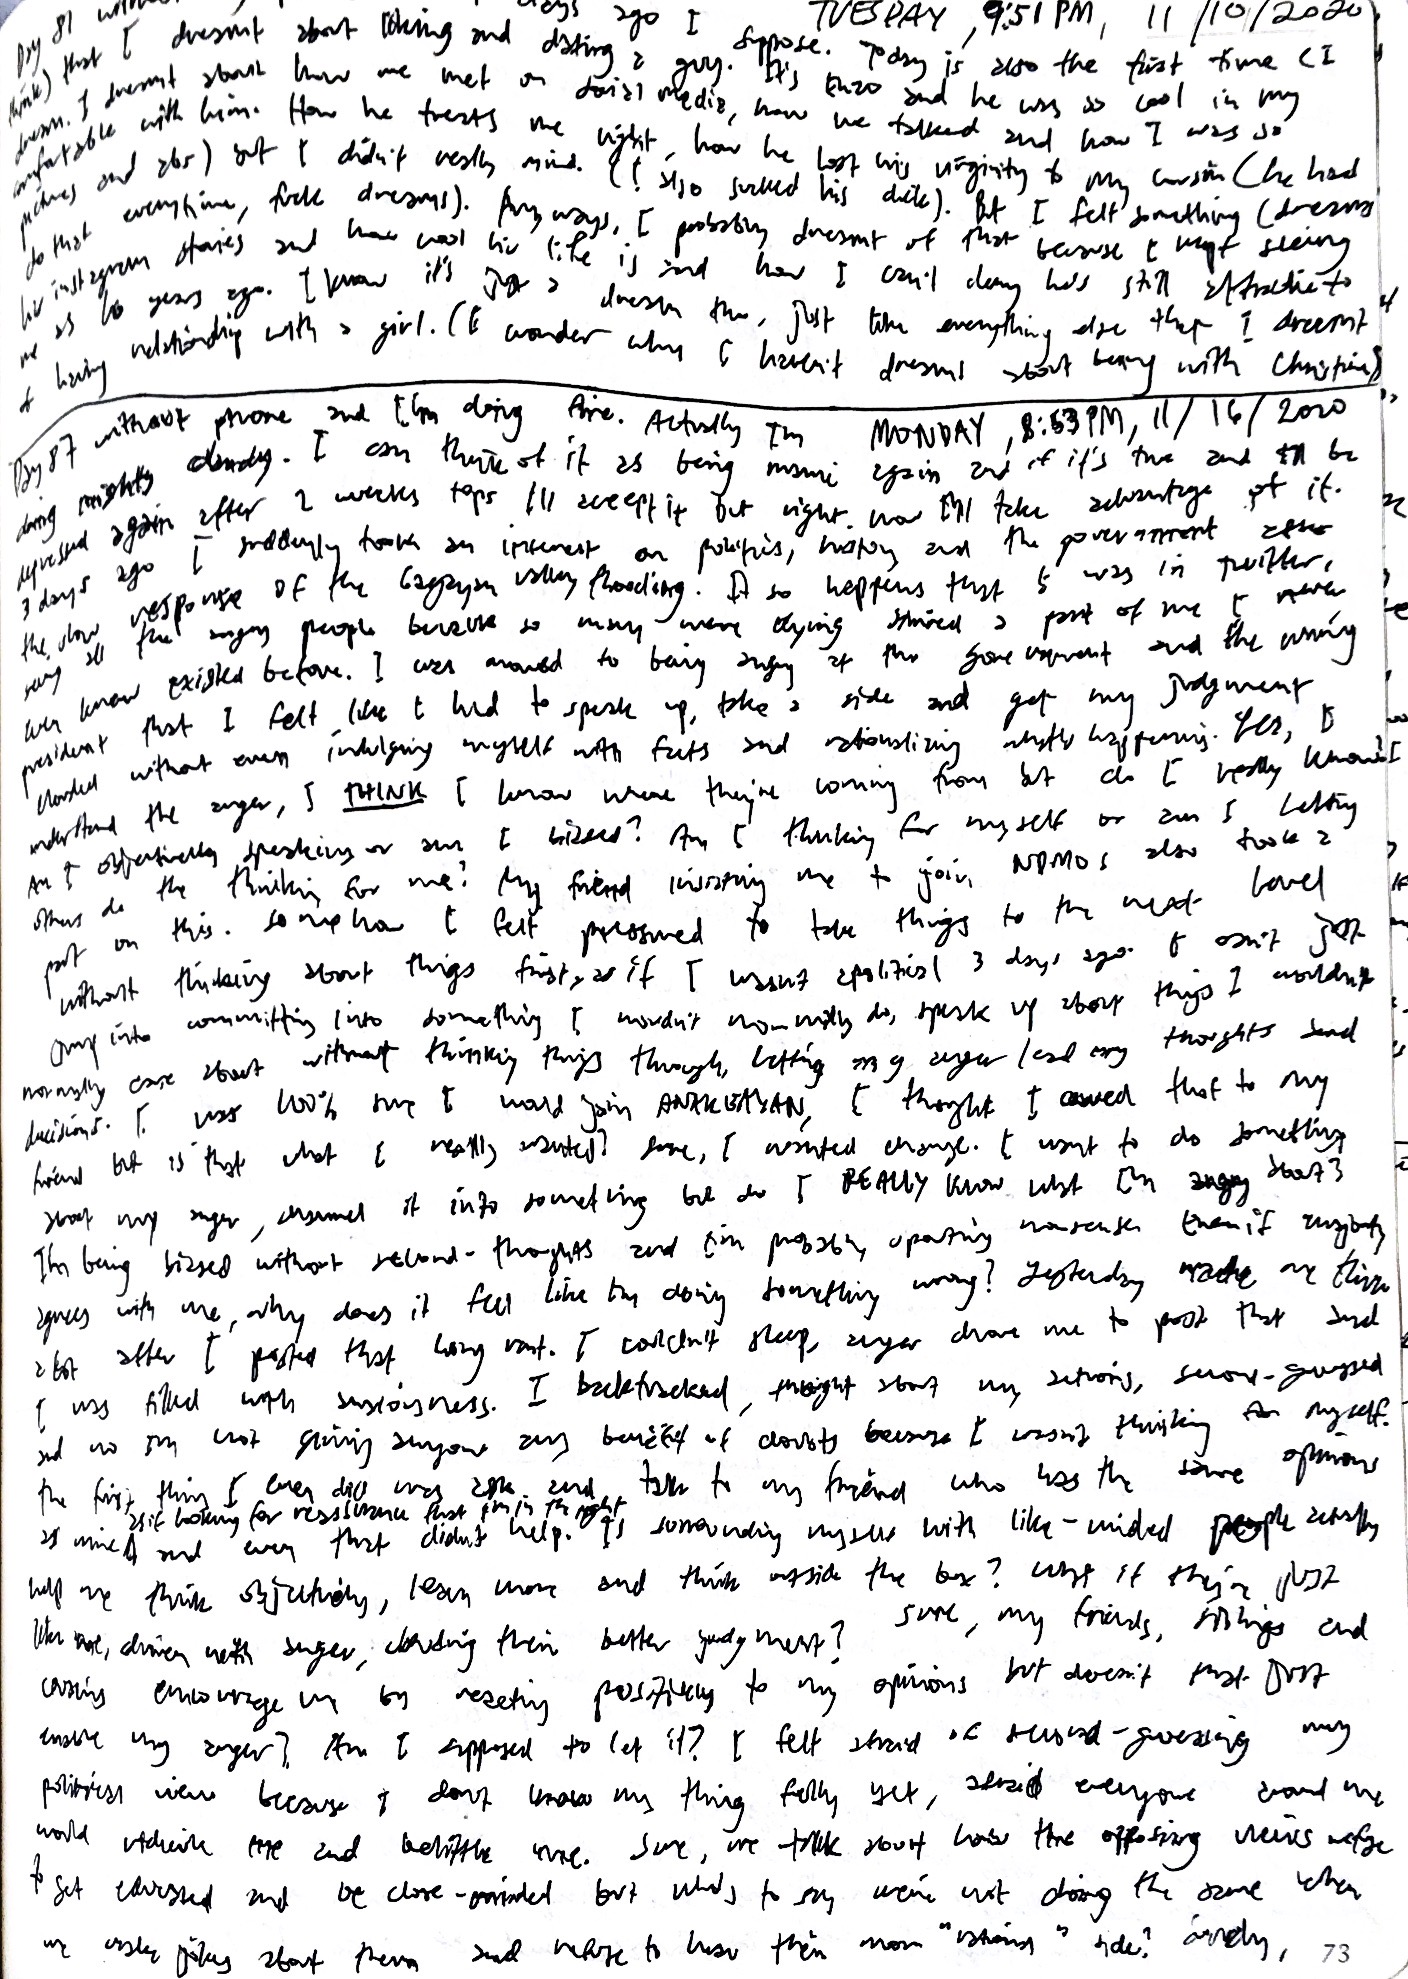 TUESDAY, 9:51 PM, 11/10/2020
Day 81 without days ago I suppose. Today is also the first time (I
think) that I dreamt about liking and dating a guy. It's Enzo and he was so cool in my
dream. I dreamt about how we met on social media, how we talked and how I was so
comfortable with him. How he treats me right, how he lost his virginity to my cousin (he had
pictures and abs) but I didn't really mind. (I also sucked his dick). But I felt something (dreams
do that everytime, fuck dreams). Anyways, I probably dreamt of that because I kept seeing
his instagram stories and how cool his life is and how I can't deny he's still attractive to
me as years ago. I know it's just a dream tho, just like everything else that I dreamt
of having relationship with a girl. (I wonder why I haven't dreams about being with Christine)
MONDAY, 8:53 PM, 11/16/2020
Day 87 without phone and I'm doing fine. Actually I'm
doing mighty dandy. I can think of it as being manic again and if it's true and I'll be
depressed again after 2 weeks tops I'll accept it but right now I'll take advantage of it.
3 days ago I suddenly took an interest on politics, history and the government
the slow response of the Cagayan valley flooding. It so happens that I was in twitter,
seeing all the angry people because so many were dying stirred a part of me I never
even knew existed before. I was moved to being angry at the government and the
president that I felt like I had to speak up, take a side and get my judgment
clouded without even indulging myself with facts and rationalizing what's happening. Yes, I
understand the anger, I THINK I know where they're coming from but do I really know?
Am I objectively speaking or am I biased? Am I thinking for myself or am I letting
others do the thinking for me? My friend inviting me to join NDMOs also took a
part on this. Somehow I felt pressured to take things to the next level
without thinking about things first, as if I wasn't apolitical 3 days ago. I can't just
jump into committing into something I wouldn't normally do, speak up about things I wouldn't
normally care about without thinking things through, letting my anger lead my thoughts and
decisions. I was 100% sure I would join ANAKBAYAN, I thought I owed that to my
friend but is that what I really wanted? Sure, I wanted change. I want to do something
about my anger, channel it into something but do I REALLY know what I'm angry about?
I'm being biased without second-thoughts and I'm probably spouting nonsense. Even if anybody
agrees with me, why does it feel like I'm doing something wrong? Yesterday made me think
a lot after I posted that long rant. I couldn't sleep, anger drove me to post that and
I was filled with anxiousness. I backtracked, thought about my actions, second-guessed
and no I'm not giving anyone any benefit of doubts because I wasn't thinking for myself.
The first thing I ever did was ask and talk to my friend who has the same opinions
as mine as if looking for reassurance that I'm in the right and even that didn't help. Is surrounding myself with like-minded people actually
help me think objectively, learn more and think outside the box? What if they're just
like me, driven with anger, clouding their better judgment? Sure, my friends, siblings and
cousins encourage me by reacting positively to my opinions but doesn't that just
enable my anger? Am I supposed to let it? I felt afraid of second-guessing my
political view because I don't know my thing fully yet, afraid everyone around me
would ridicule me and belittle me. Sure, we talk about how the opposing views refuse
to get educated and be close-minded but who's to say we're not doing the same when
we make jokes about them and refuse to hear their more "rational" side?
73